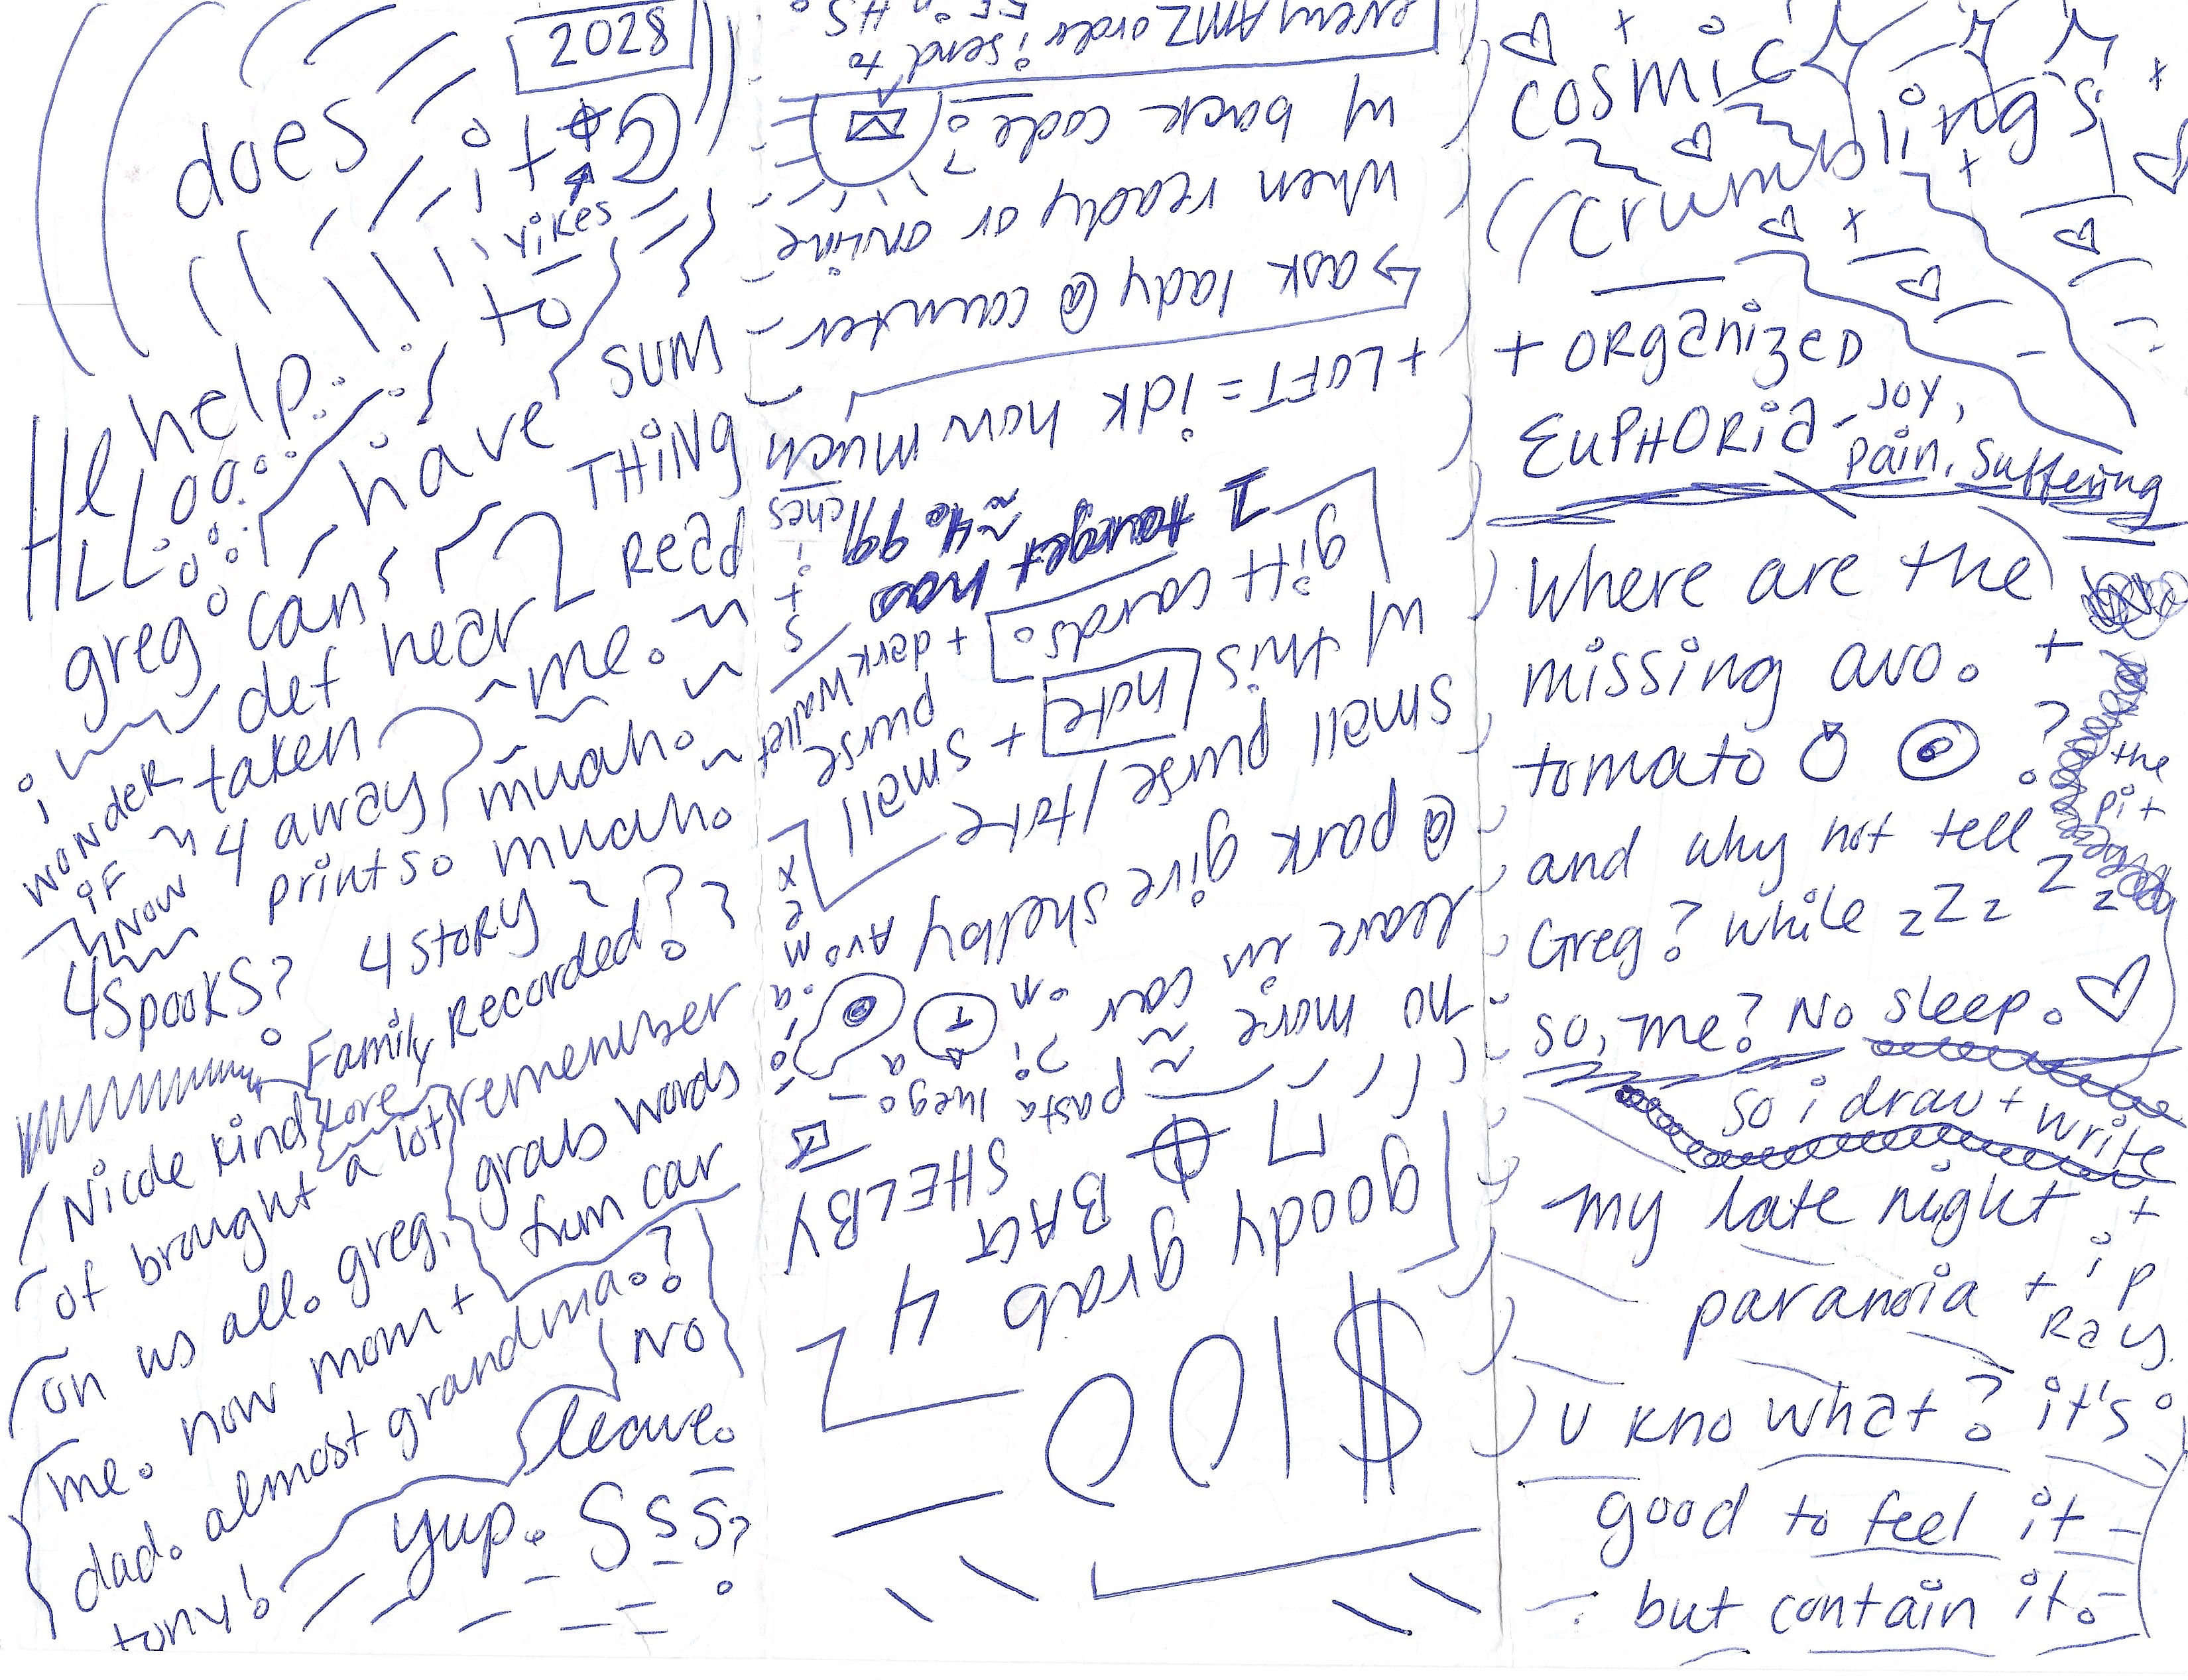 2028
does
it
yikes
help
to
HELLOOO
have SUM
THING
greg can
READ
def hear me.
i WONDER IF
taken
4 away? muah.
NOW
prints so muah.
4 SPOOKS? 4 STORY?
Family Recorded?
Nicole kind
lore
of brought a lot
remember
grabs words
from car
on us all. greg,
me. now mom +
dad. almost grandma.?
NO
tony!
leave.
yup. SSS?
$100
goody grab 4
BACT
SHELBY
no more
pasta luego
leave in car
@ park give shelby
small purse/tote
w/ this note + small
purse
+ derk wallet
gift cards.
1 target has ≈40.99/
+ LOFT = idk how much
→ask lady @ counter
when ready or online
w/ back code?
every AMZ order i send to
cosmic
crumblings
+ ORganizED
EUPHORia - JOY,
pain, Suffering
where are the
missing avo. +
tomato ?
the
pit
and why not tell
Greg? while zZz Zz
so, me? No sleep.
so i draw + write
my late night +
paranoia +
i P
Ray.
U kno what? it's
good to feel it -
but contain it.